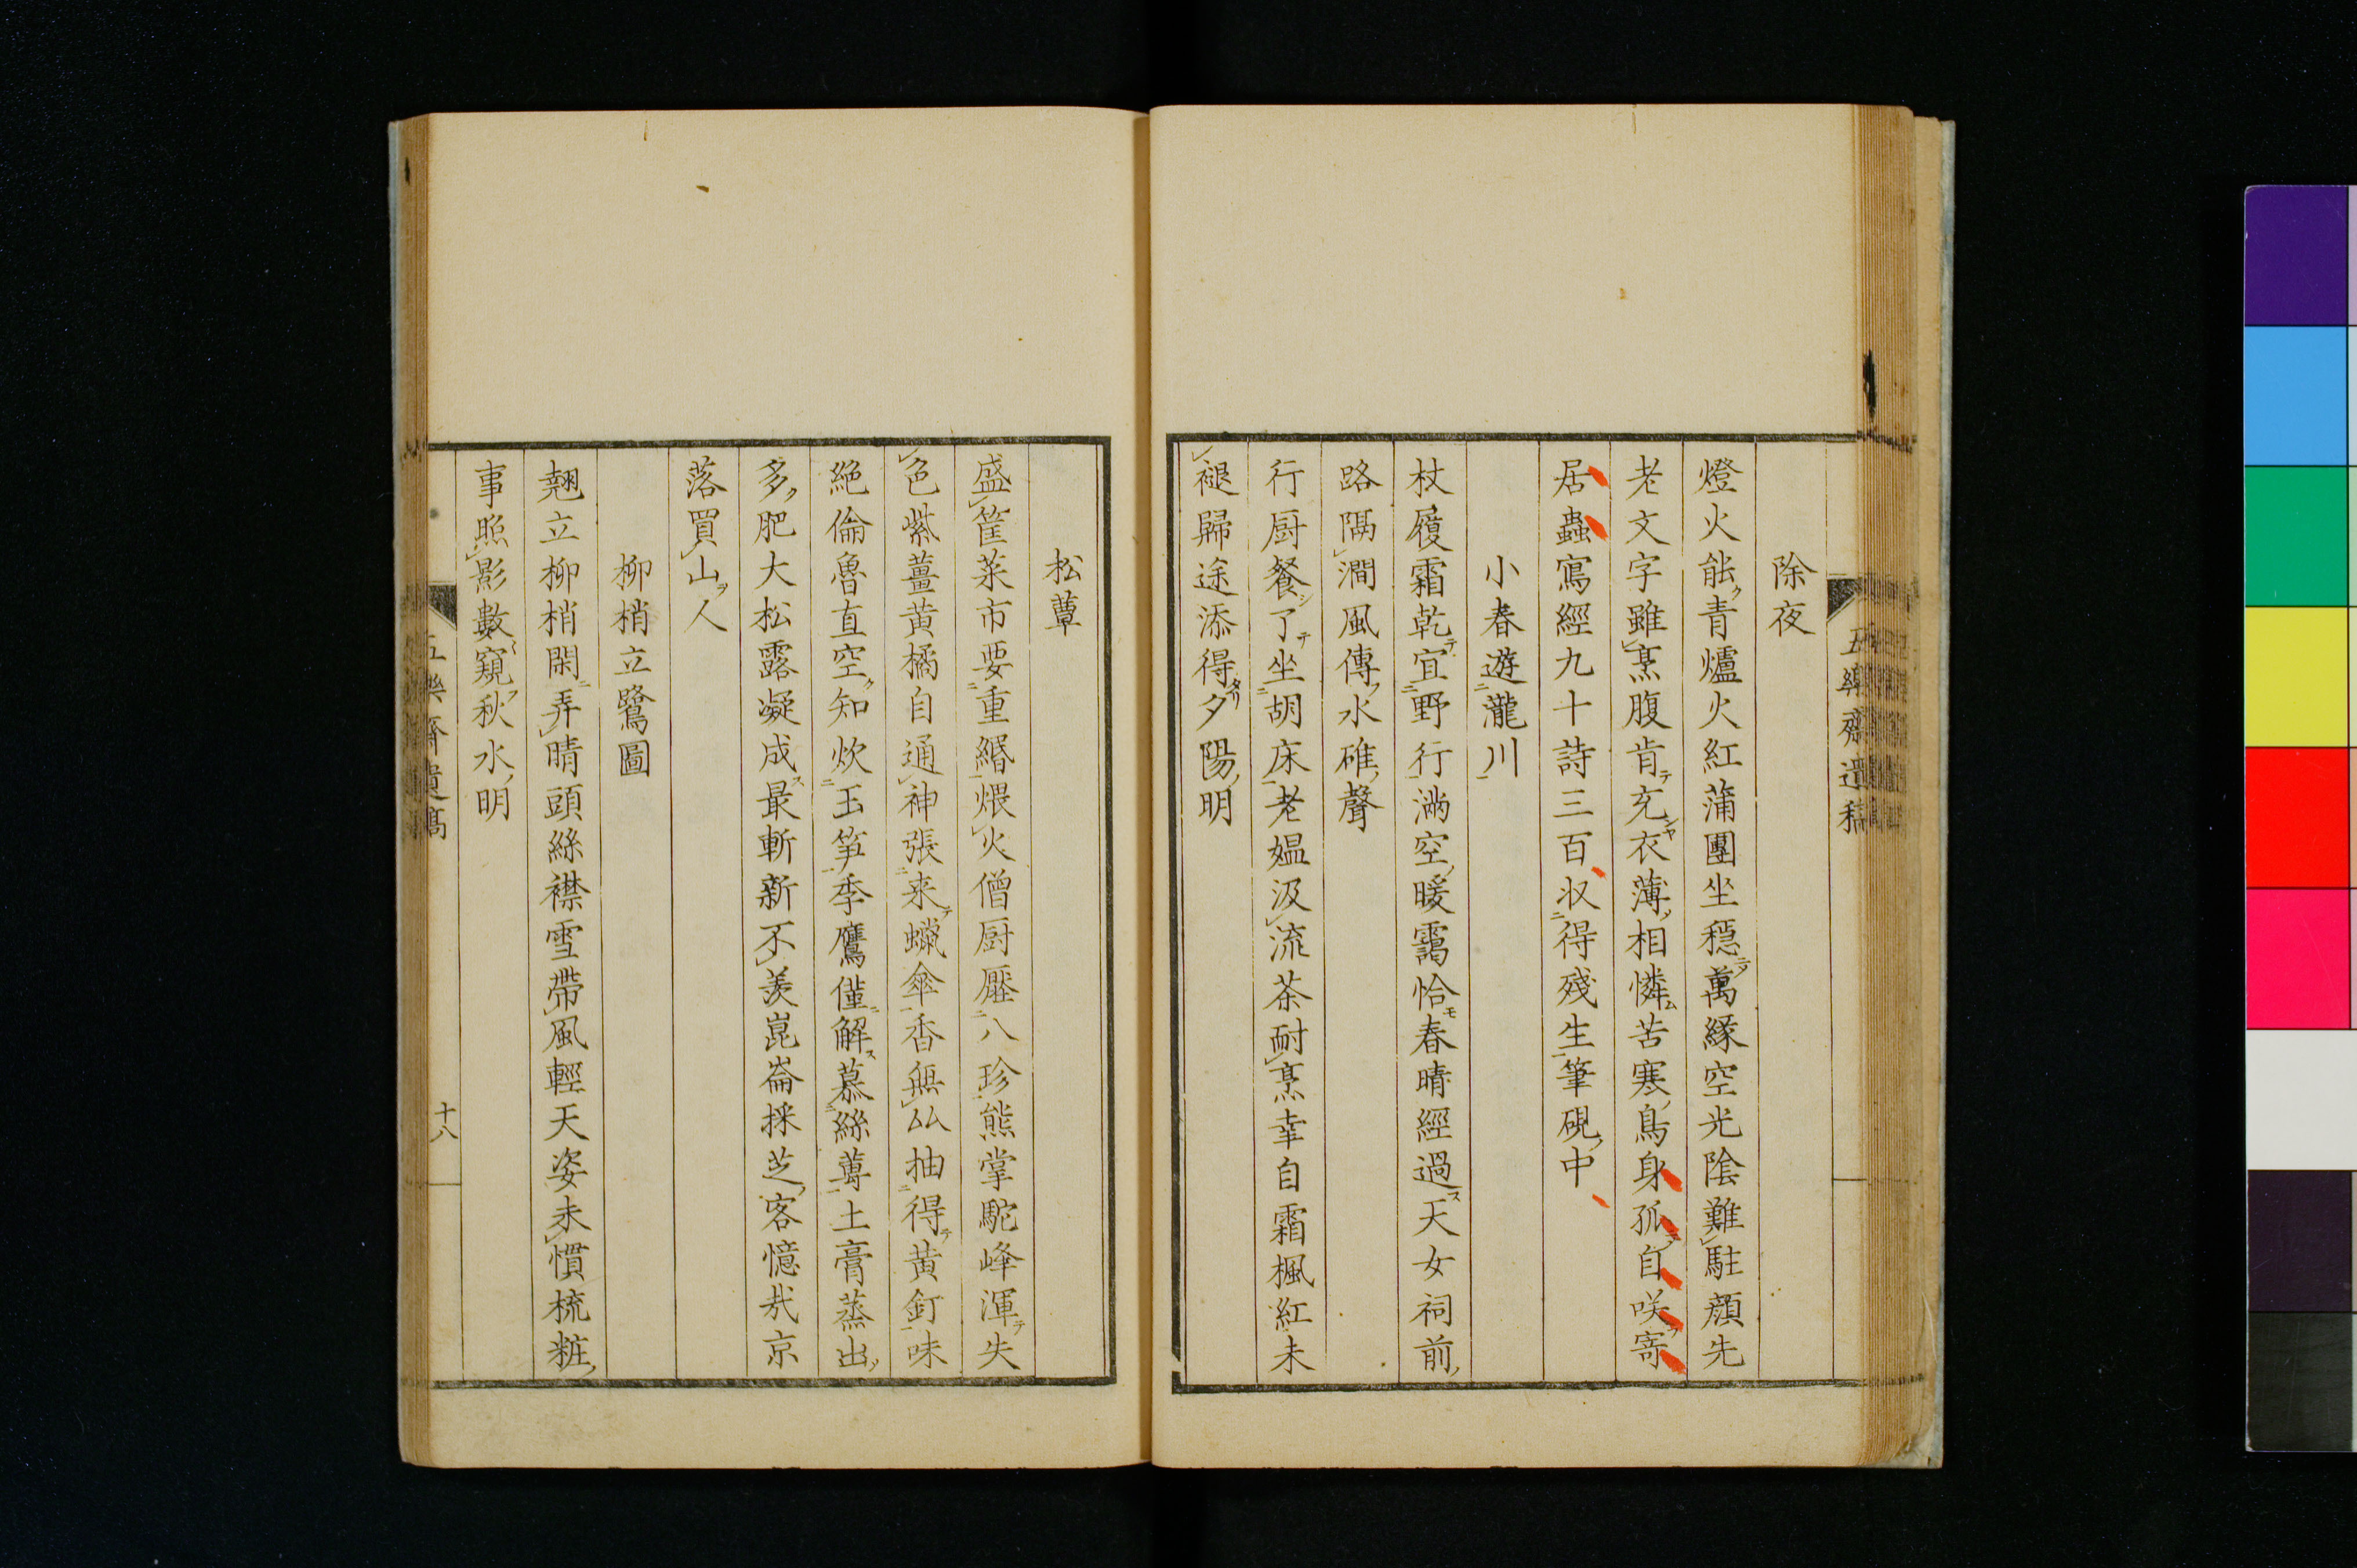 五樂齋遺稿
除夜
燈火能青爐火紅蒲團坐穩萬緣空光陰難駐顏先
老文字雖烹腹肯充衣薄相憐苦寒鳥身孤自咲寄
居蟲寫經九十詩三百収得殘生筆硯中
小春遊瀧川
杖履霜乾宜野行滿空暖靄恰春晴經過天女祠前
路隔澗風傳水碓聲
行厨餐了坐胡床老媼汲流茶耐烹幸自霜楓紅未
褪歸途添得夕陽明
松蕈
盛筐菜市要重緡煨火僧厨壓八珍熊掌駝峰渾失
色紫薑黄橘自通神張来蠟傘香無厶抽得黄釘味
絶倫魯直空知炊玉笋季鷹僅解慕絲蓴土膏蒸出
多肥大松露凝成最斬新不羨崑崙採芝客憶哉京
落買山人
柳梢立鷺圖
翹立柳梢閑弄晴頭絲襟雪帶風輕天姿未慣梳粧
事照影數窺秋水明
五樂齋遺稿
十八